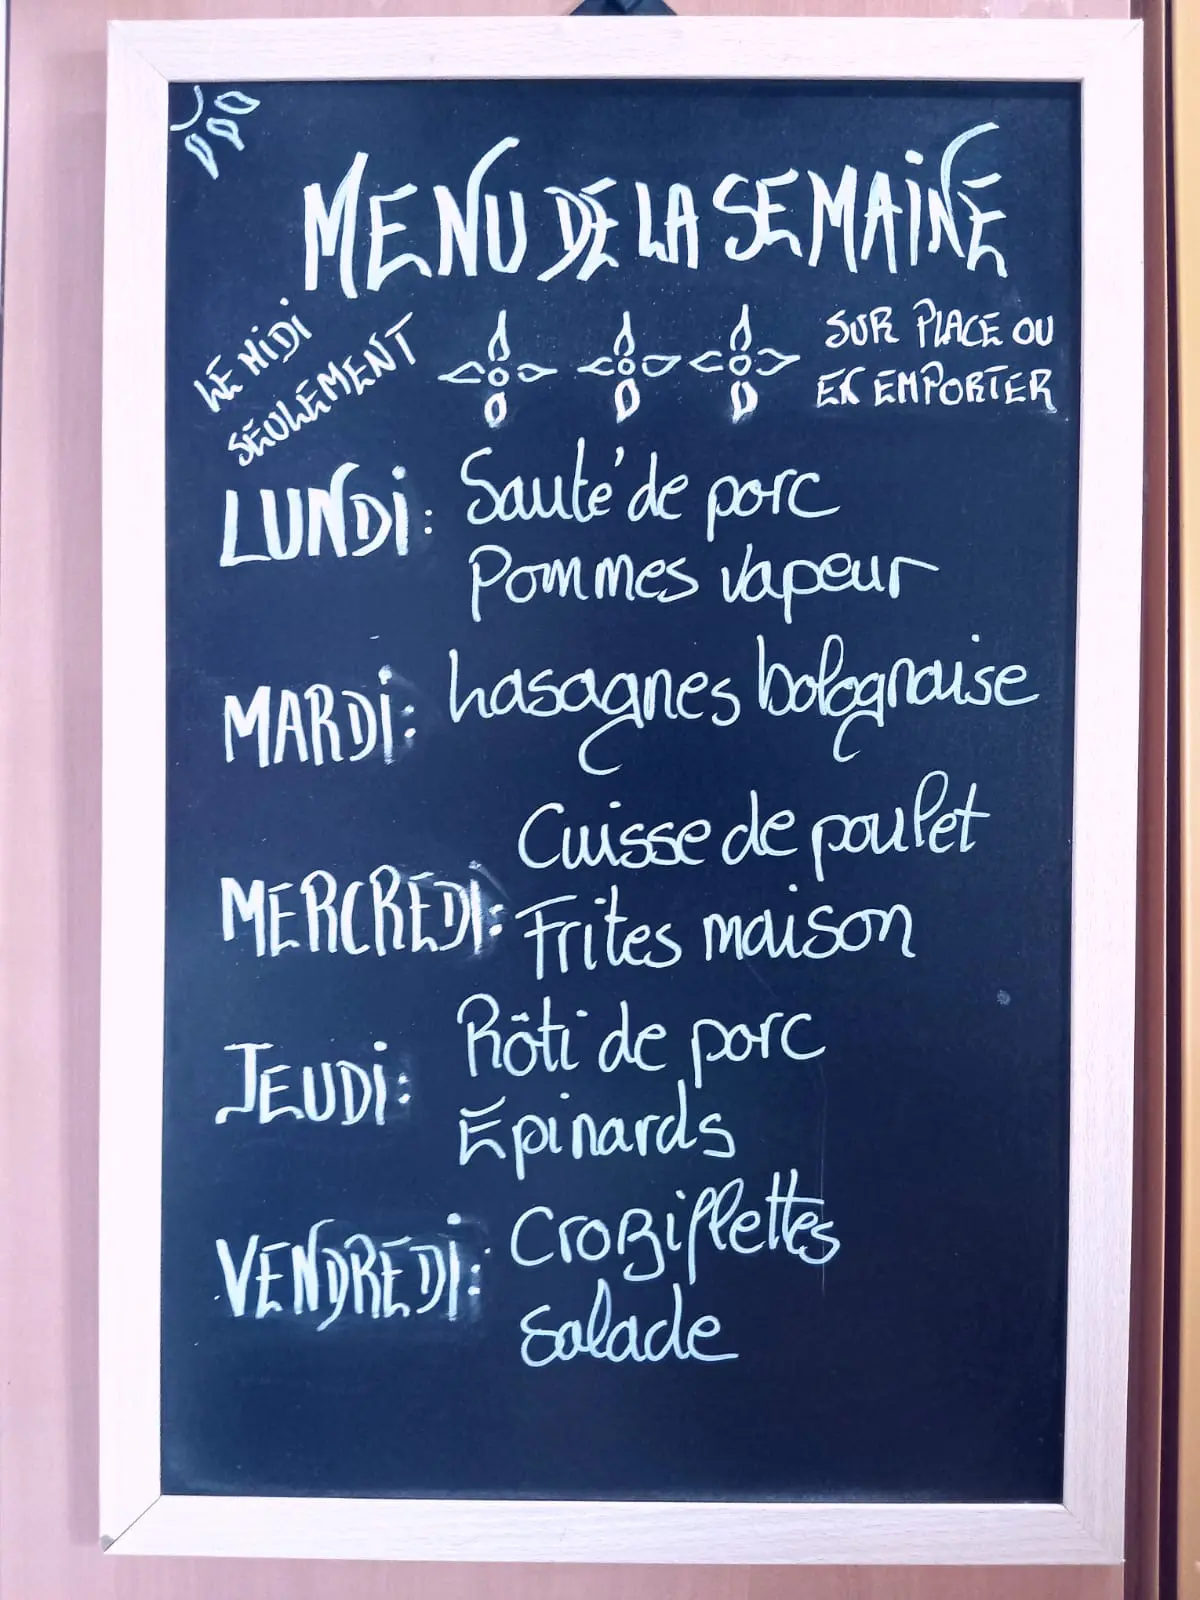 MENU DE LA SEMAINE
LE MIDI
SEULEMENT
SUR PLACE OU
EN EMPORTER
LUNDI : Sauté de porc
Pommes vapeur
MARDI : Lasagnes bolognaise
Cuisse de poulet
MERCREDI : Frites maison
Rôti de porc
JEUDI :
Epinards
Croziflettes
VENDREDI :
Salade